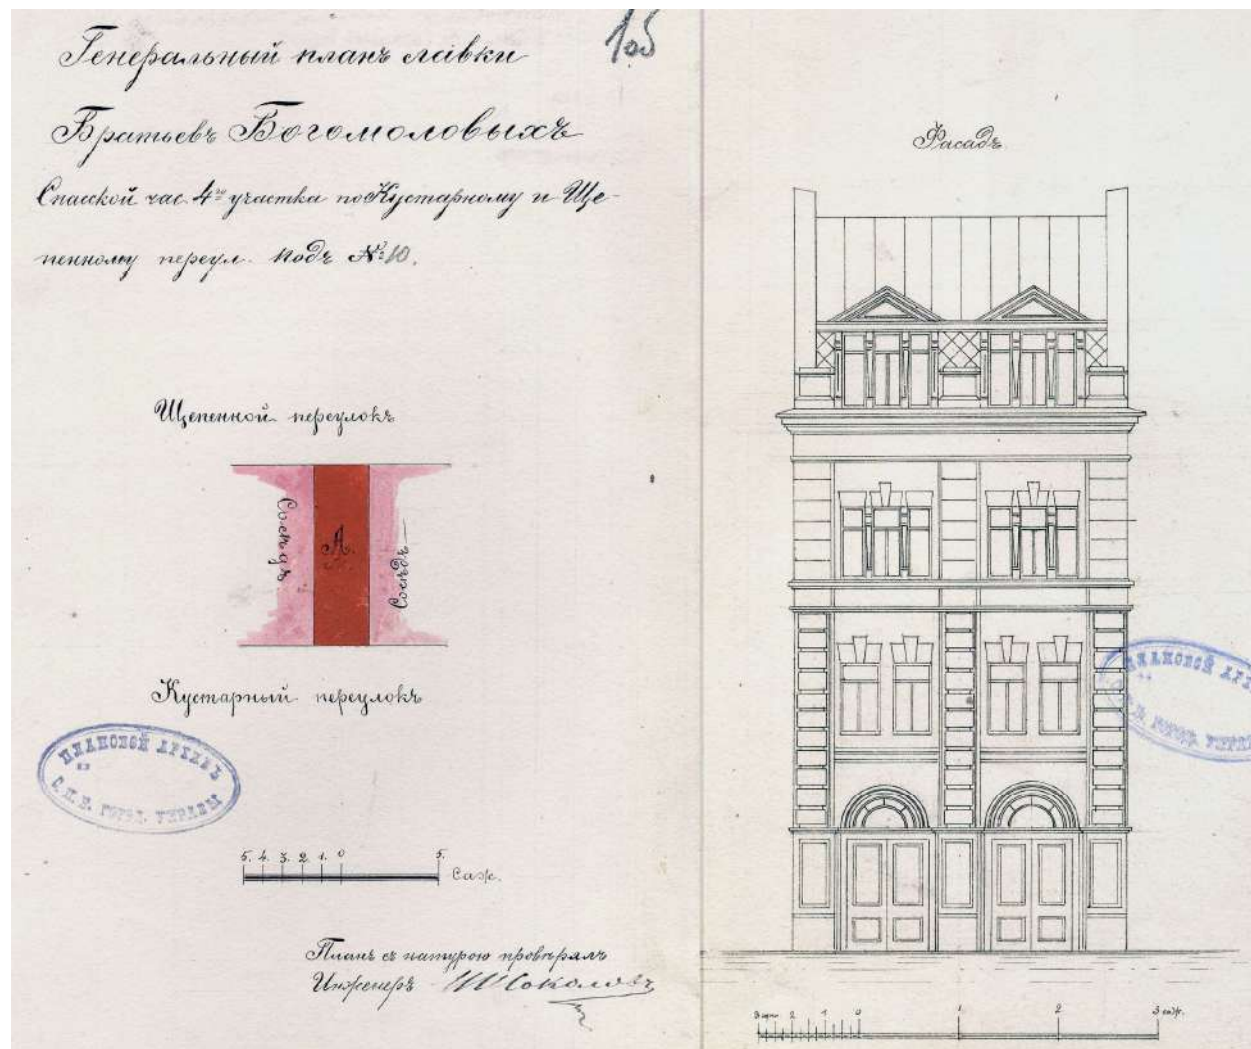 Генеральный планъ лавки
105
Братьевъ Богомоловыхъ
Спасской час. 4го участка по Кустарному и Ще-
пенному переул. подъ № 10.
Щепенной переулокъ
Сосѣдъ
А.
Сосѣдъ
Кустарный переулокъ
ПЛАНОВОЙ АРХИВЪ
С.П.Б. ГОРОД. УПРАВЫ
5. 4. 3. 2. 1. 0 5. Саж.
Планъ съ натурою провѣрялъ
Инженеръ Соколовъ
Фасадъ
ПЛАНОВОЙ
ГОРОД. УПРАВ
3 арш. 2 1 0 1 2 3 саж.